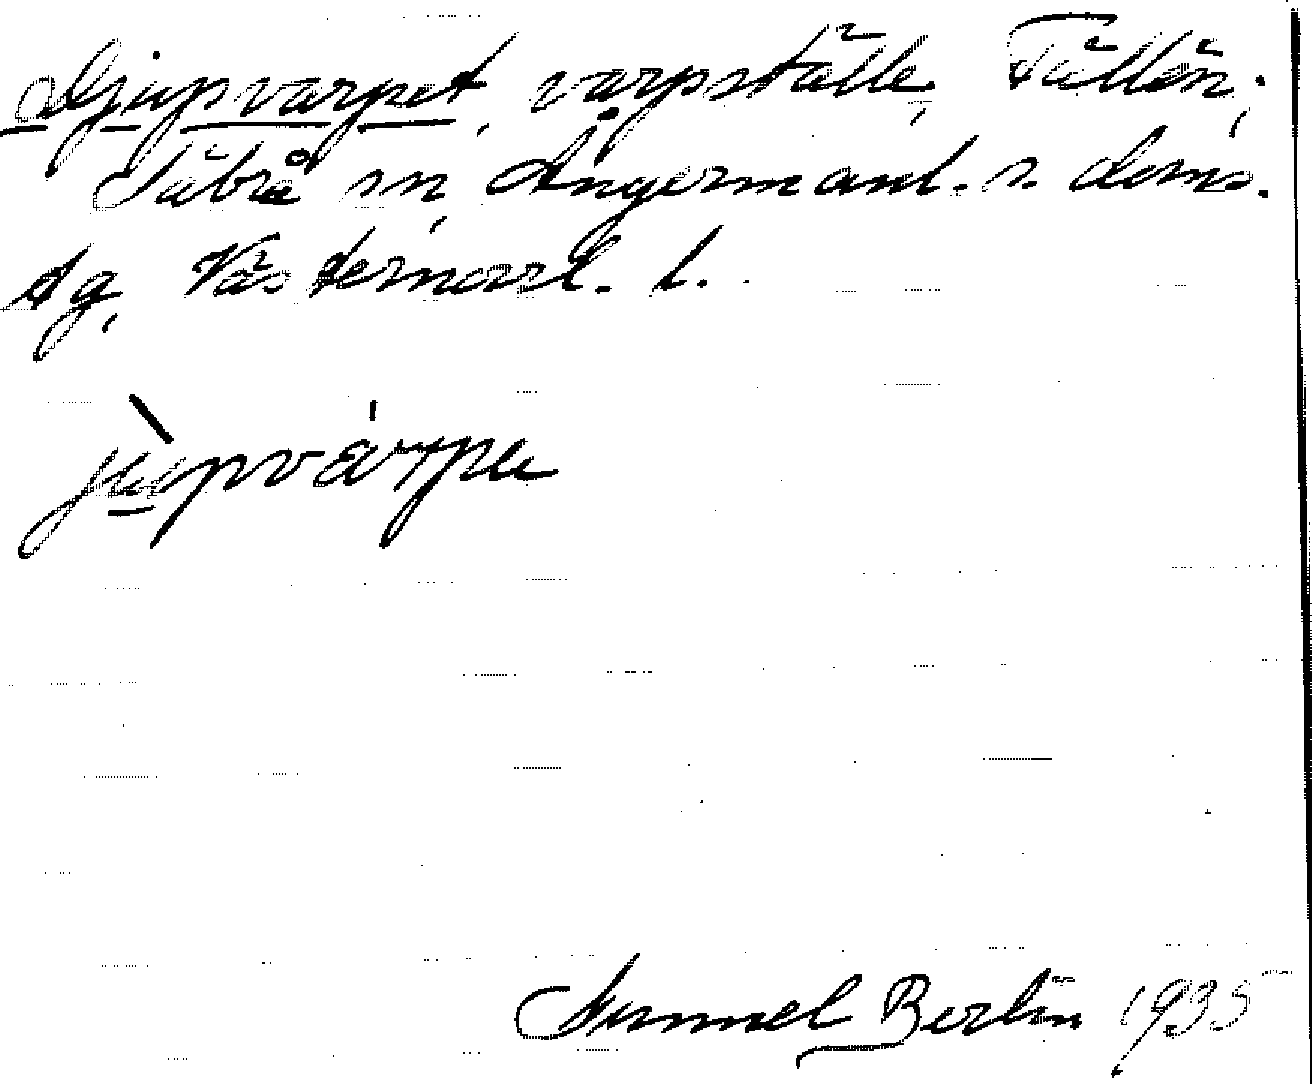 Djupvarpet, varpställe, Fällön,
Säbrå sn, Ångermanl. s. doms.
ag, Västernorrl. l.
jùpvárpa
Gunnel Berlin 1935